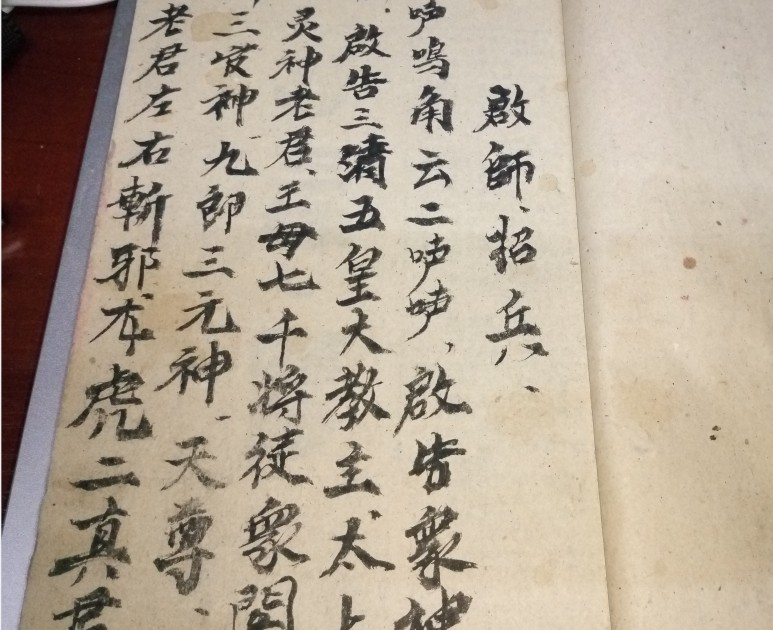 啟師、招兵、
鳴角云二、啟告衆神
啟告三清五皇大教主太上
灵神老君、王母七千將徒衆
三神九郎三元神、天尊、
老君左右斬邪龙虎二真君